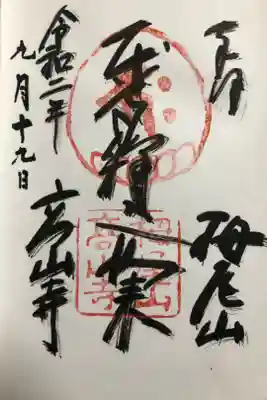 奉拝
栂尾山
栂尾山
高山寺
令和二年
九月十九日
高山寺